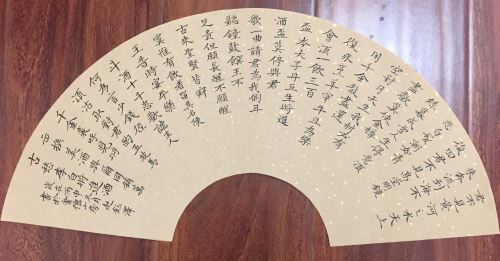 君不見黃河之水天上
來奔流到海不
復回君不見高堂明鏡
悲白髮朝如青
絲暮成雪人生得意須
盡歡莫使金樽
空對月天生我材必有
用千金散盡還
復來烹羊宰牛且為樂
會須一飲三百
盃岑夫子丹丘生將進
酒盃莫停與君
歌一曲請君為我側耳
聽鐘鼓饌玉不
足貴但願長醉不願醒
古來聖賢皆寂
寞惟有飲者留其名陳
王昔時宴平樂
斗酒十千恣歡謔主人
何為言少錢徑
須沽取對君酌五花馬
千金裘呼兒將
出換美酒與爾同銷萬
古愁李白將進酒
丙申